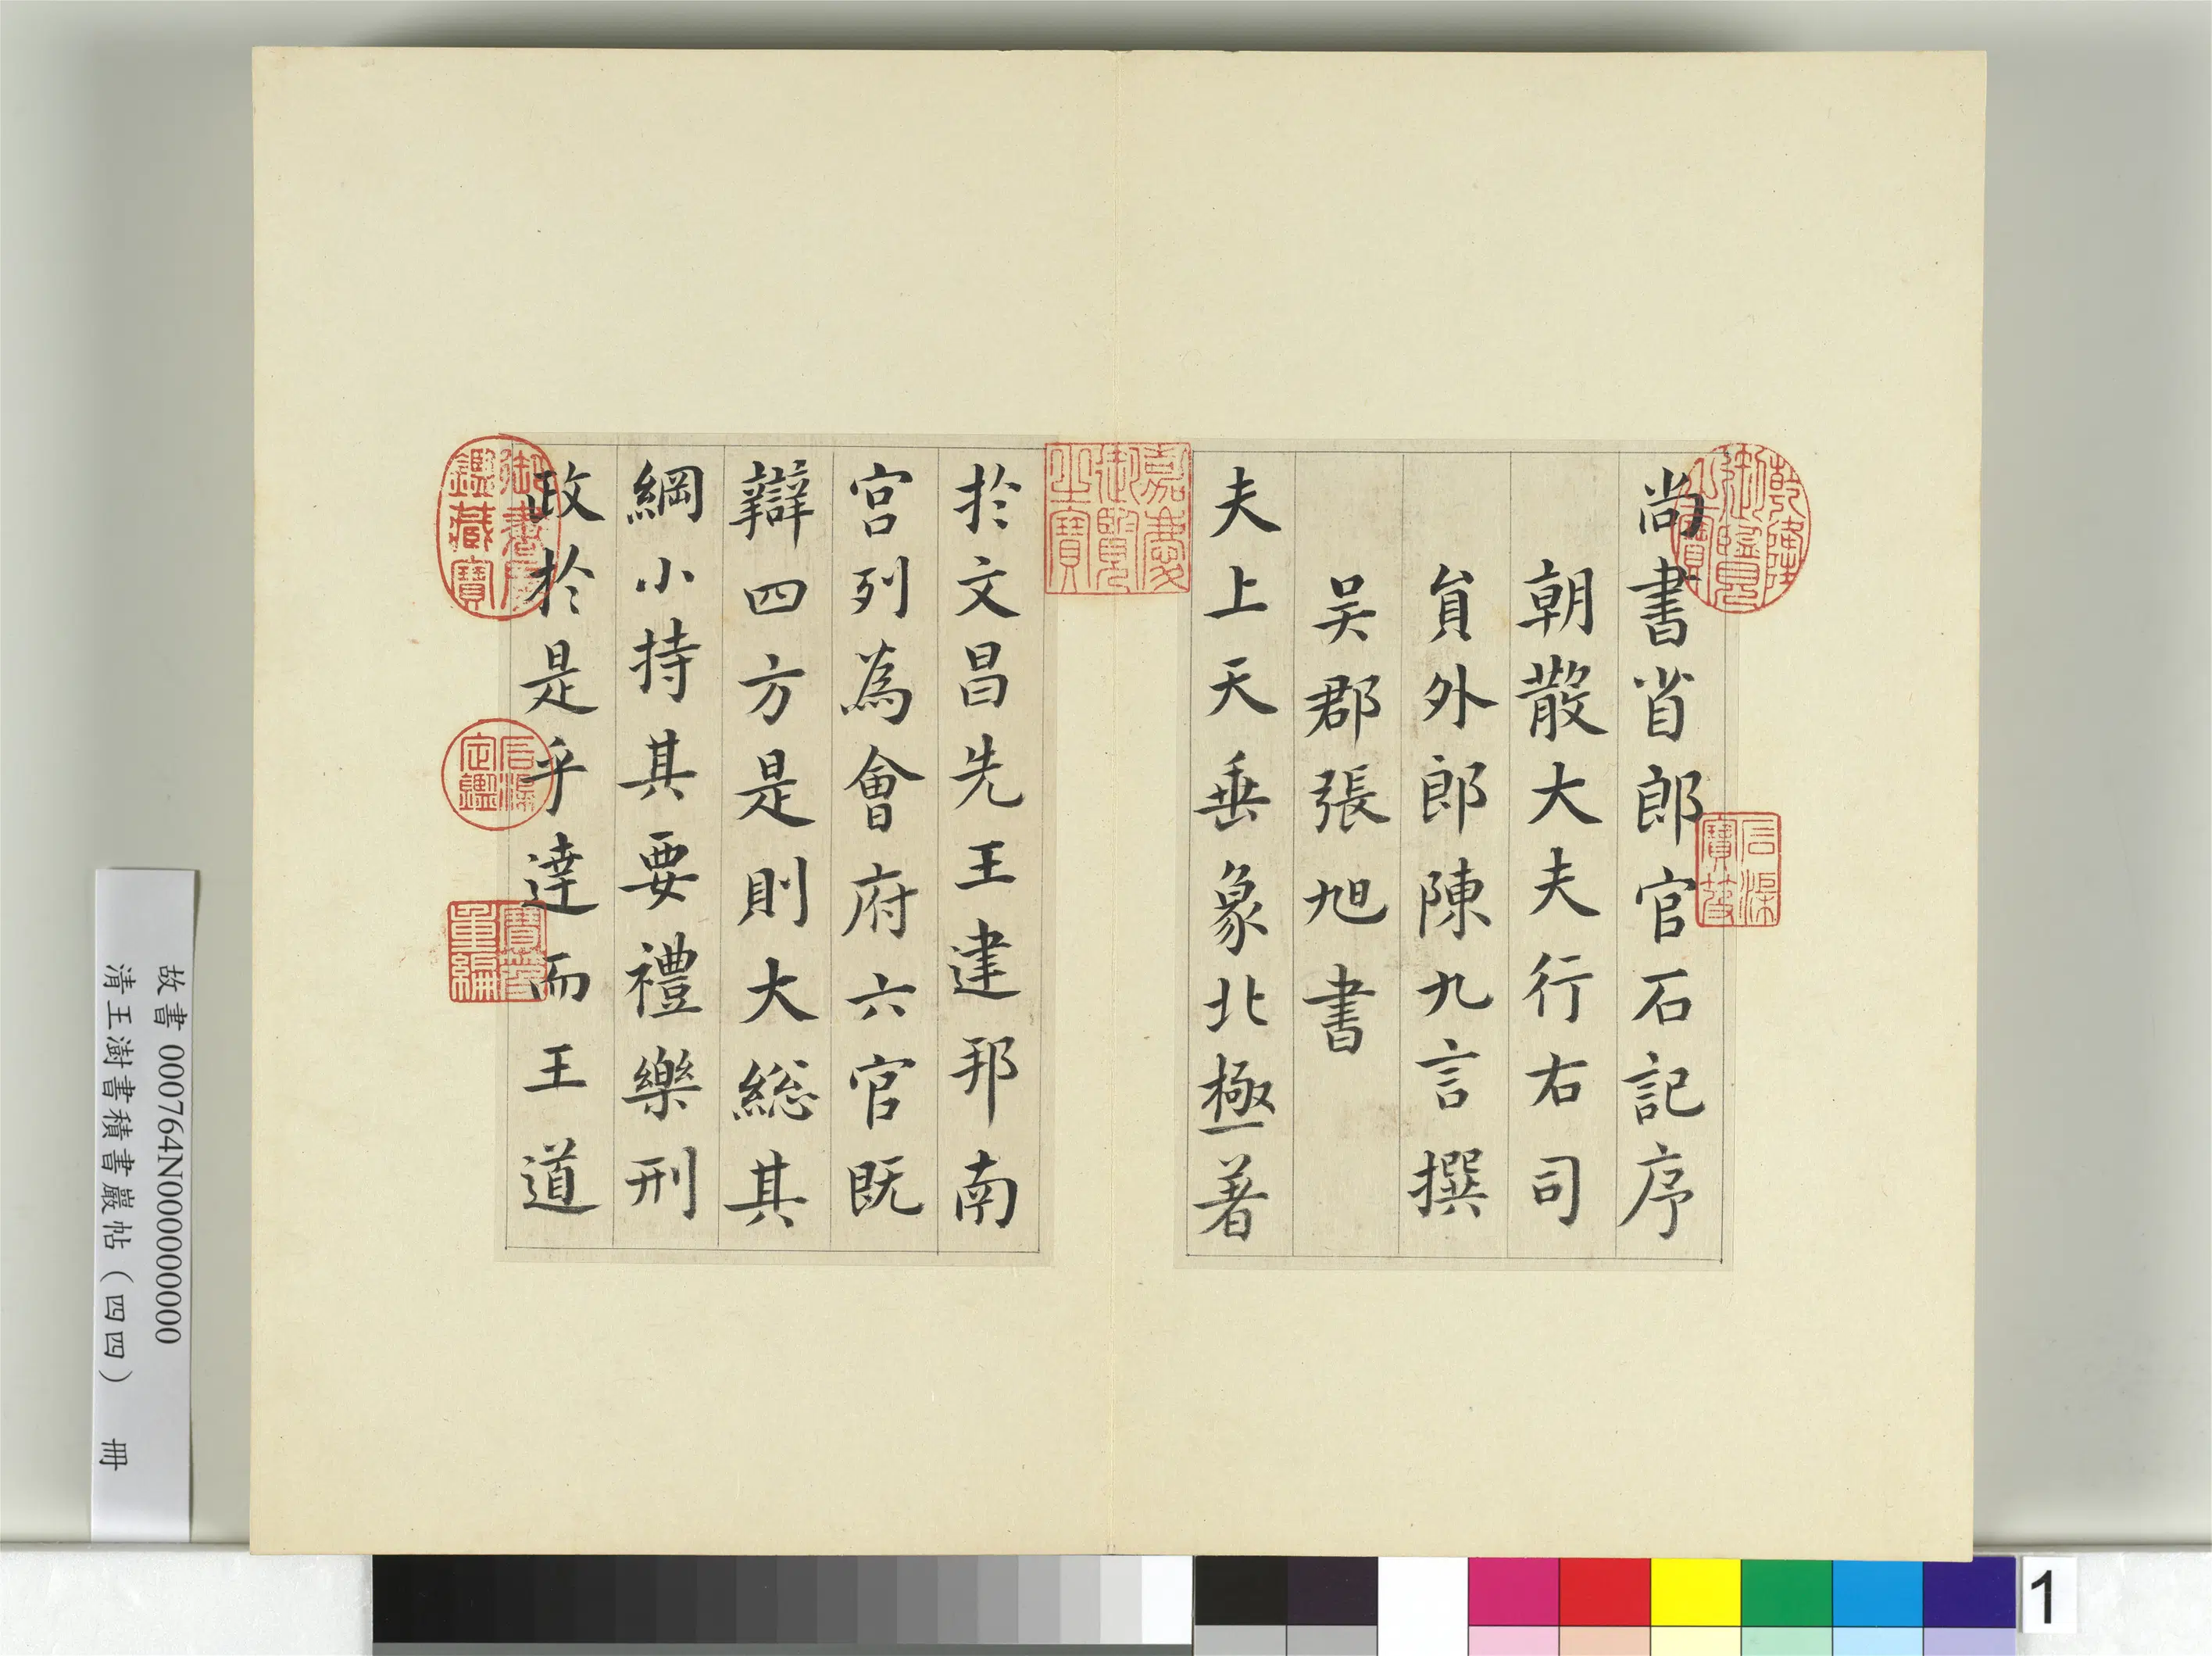 尚書省郎官石記序
朝散大夫行右司
貟外郎陳九言撰
吴郡張旭書
夫上天垂象北極著
於文昌先王建邦南
宮列為會府六官既
辯四方是則大總其
綱小持其要禮樂刑
政於是乎達而王道
乾隆御覽之寶
石渠寶笈
嘉慶御覽之寶
御書房鑑藏寶
石渠定鑑
寶笈重編
故書 000764N000000000
清王澍書積書巖帖（四四） 冊
1